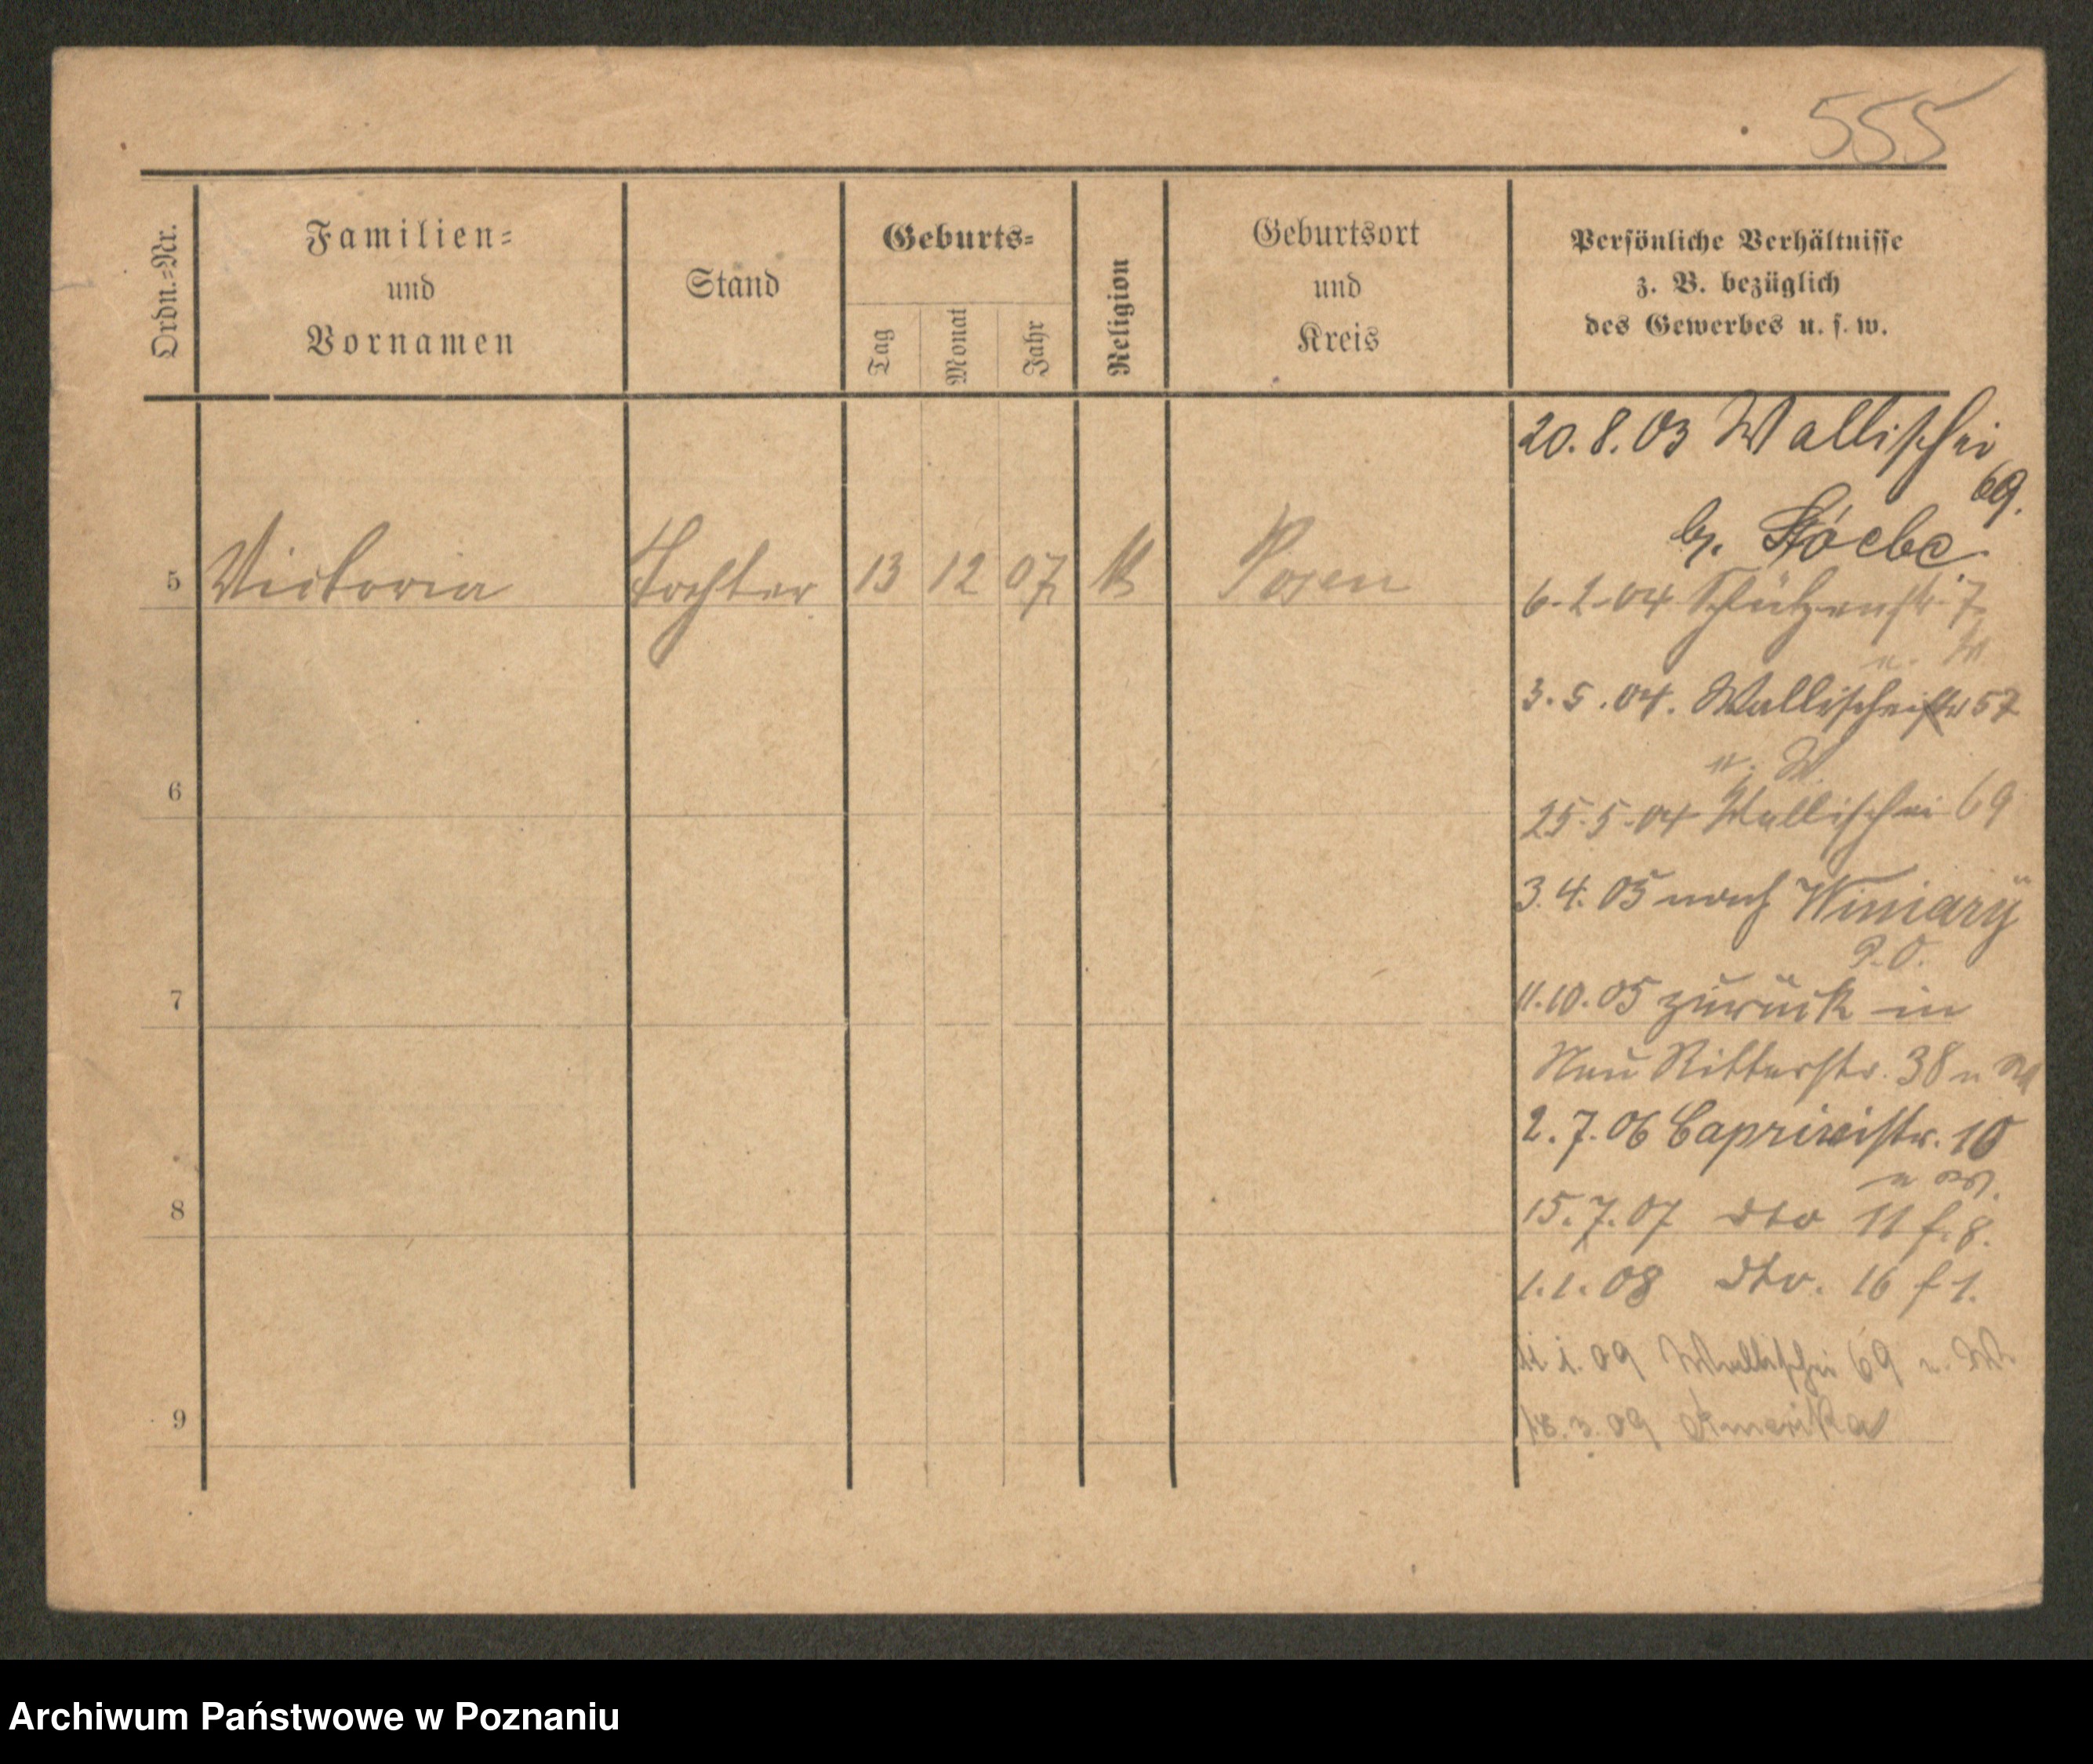 555
Ordn.-Nr.
Familien-
und
Vornamen
Stand
Geburts-
Tag
Monat
Jahr
Religion
Geburtsort
und
Kreis
Persönliche Verhältnisse
z. B. bezüglich
des Gewerbes u. s. w.
20. 8. 03 Wallischei
69.
5 Victoria Tochter 13 12 07 K Posen
6. 2. 04 Schützenstr. 7
u. W
3. 5. 04. Wallischei 57
u. W.
6
25. 5. 04 Wallischei 69
3. 4. 05 nach Winiary
P. O.
7
11. 10. 05 zurück in
Neu Ritterstr. 38 u W
2. 7. 06 Caprivistr. 10
u W.
8
15. 7. 07 dto 11 f. 8.
1. 1. 08 dto. 16 f 1.
11 1. 09 Wallischei 69 u. W.
9
18. 3. 09 Amerika
Archiwum Państwowe w Poznaniu